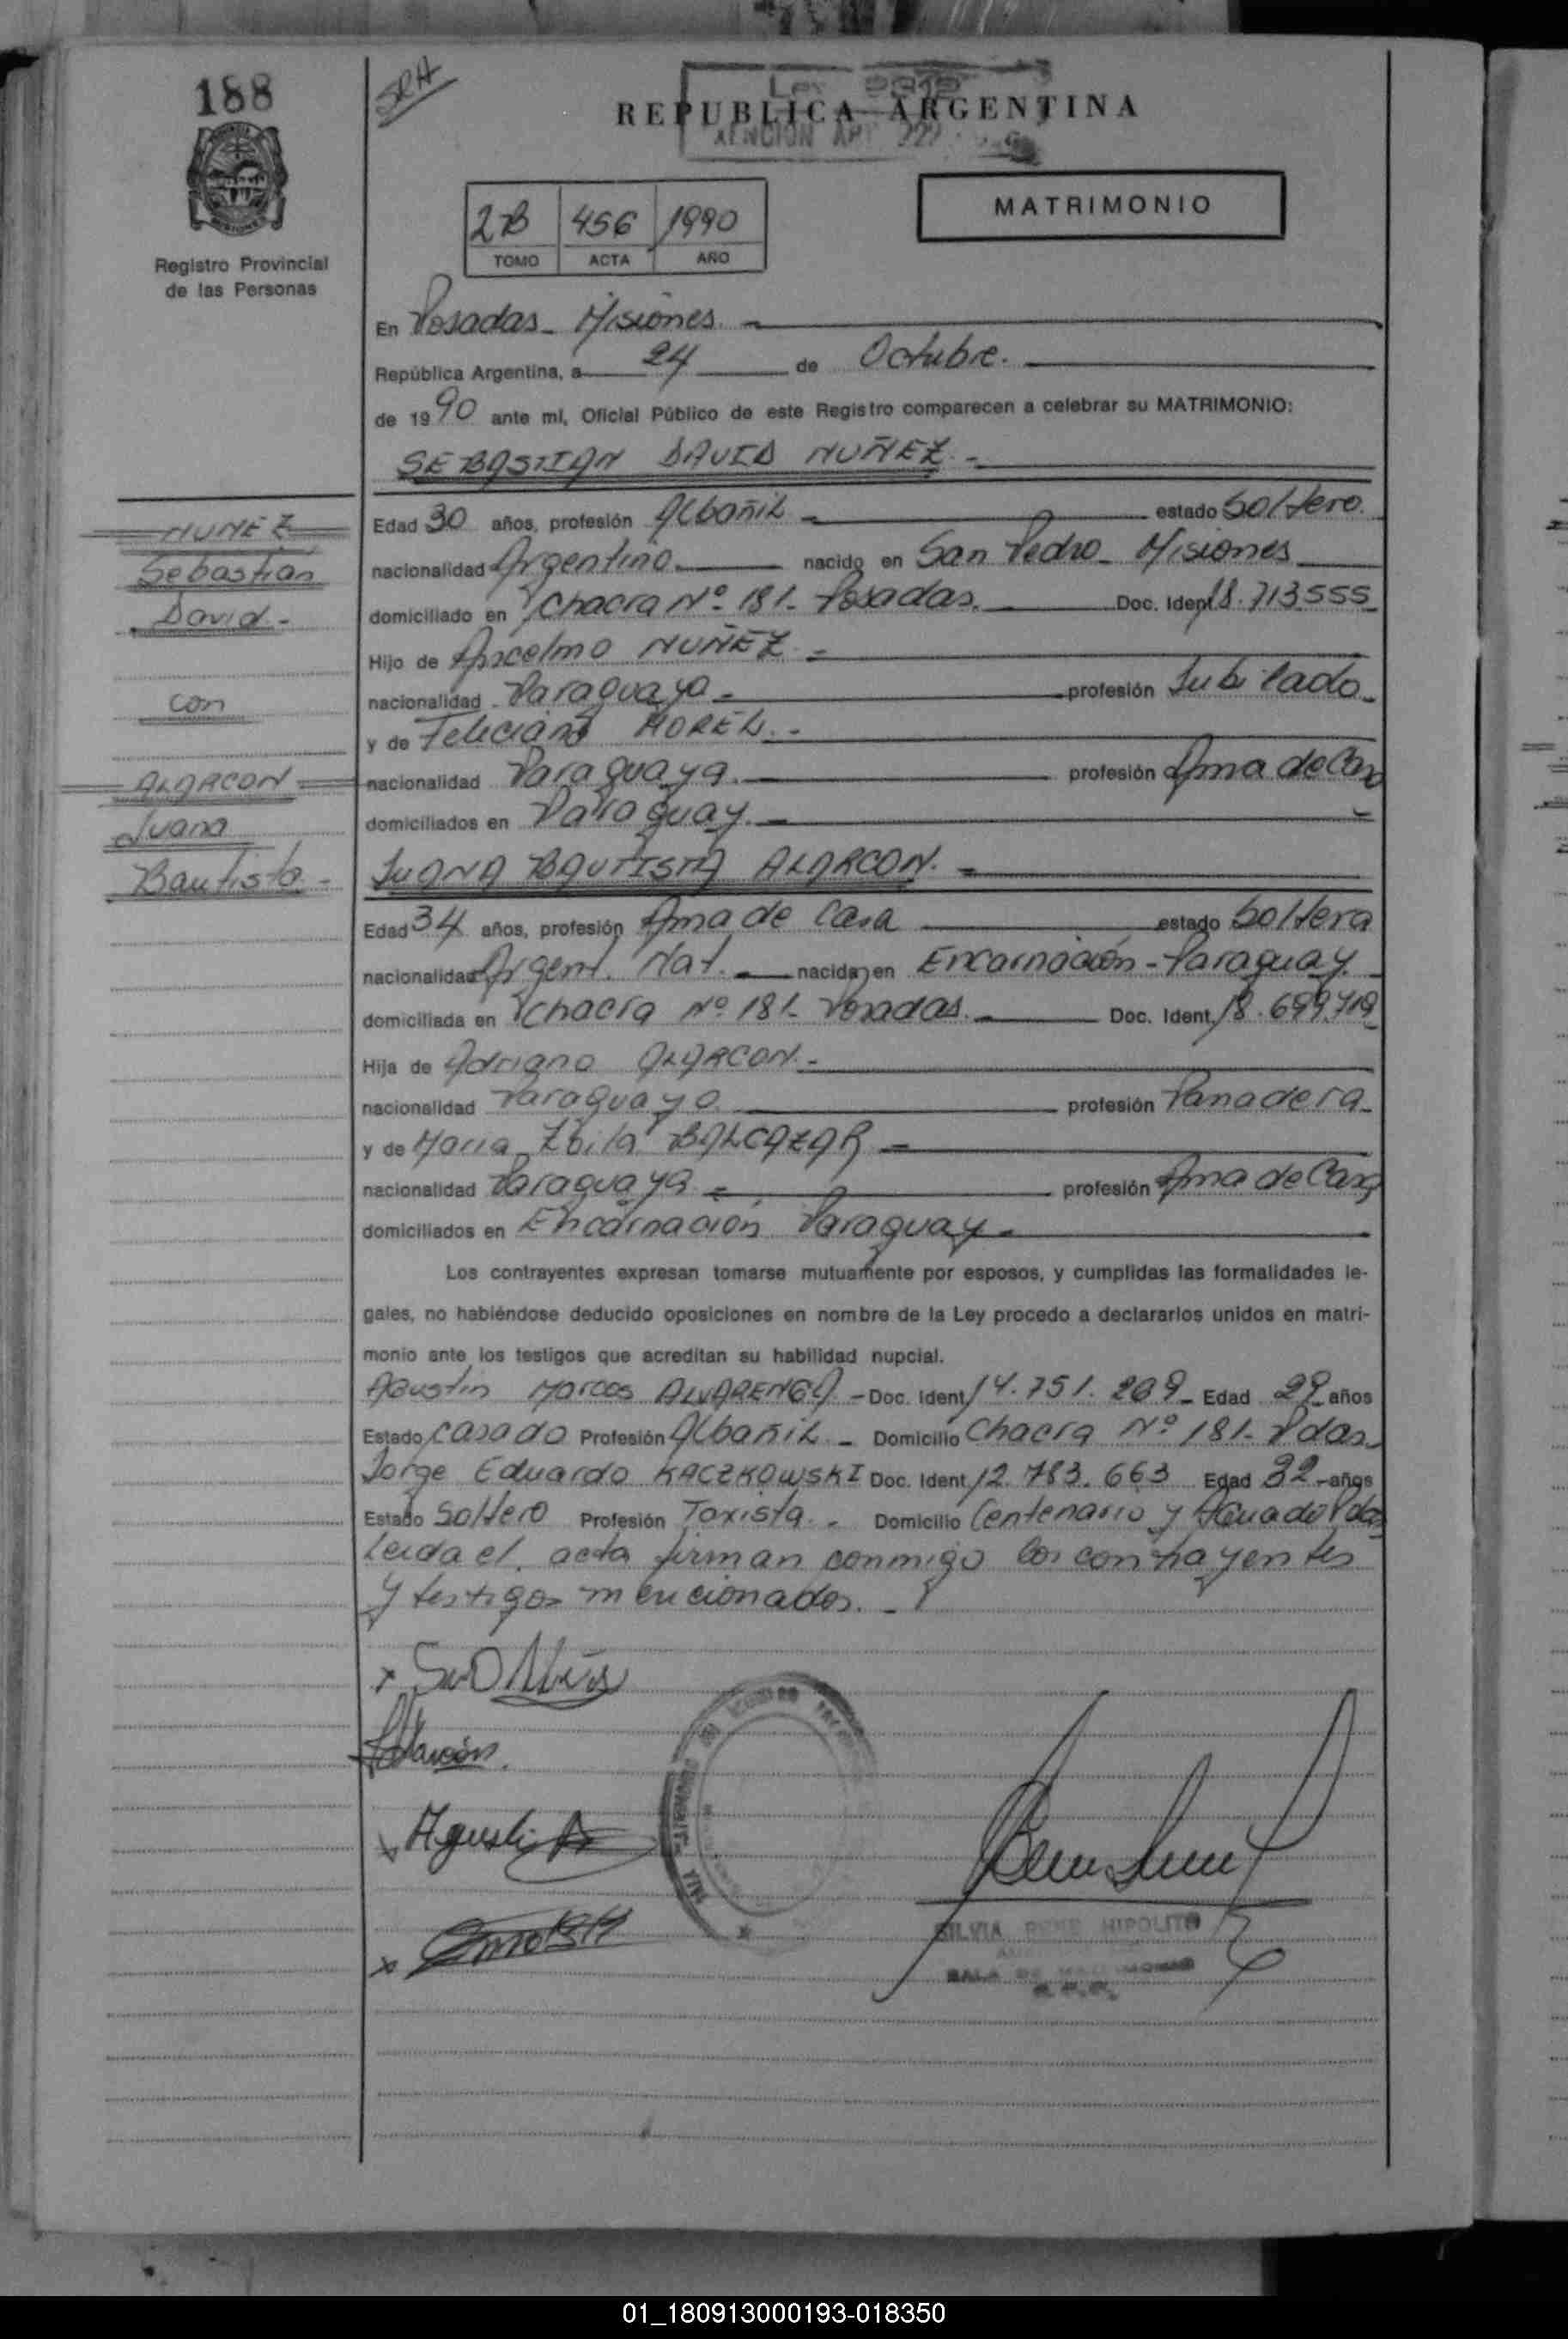 188
SRA
Ley
REPUBLICA ARGENTINA
MATRIMONIO
2B 456 1990
TOMO ACTA AÑO
Registro Provincial
de las Personas
En Posadas - Misiones. -
República Argentina, a 24 de Octubre.
de 1990 ante mí, Oficial Público de este Registro comparecen a celebrar su MATRIMONIO:
SEBASTIAN DAVID NUÑEZ. -
NUÑEZ
Sebastián
David. -
con
ALARCON
Juana
Bautista. -
Edad 30 años, profesión Albañil - estado Soltero.
nacionalidad Argentino. nacido en San Pedro - Misiones
domiciliado en Chacra Nº 181 - Posadas. Doc. Ident. 18.713555
Hijo de Ancelmo NUÑEZ. -
nacionalidad Paraguaya - profesión Jubilado -
y de Feliciana MOREL. -
nacionalidad Paraguaya. profesión Ama de Casa
domiciliados en Paraguay. -
JUANA BAUTISTA ALARCON. -
Edad 34 años, profesión Ama de Casa estado Soltera
nacionalidad Argent. Nat. - nacida en Encarnación - Paraguay.
domiciliada en Chacra Nº 181 - Posadas. - Doc. Ident. 18.699.719
Hija de Adriano ALARCON. -
nacionalidad Paraguayo. profesión Panadera -
y de Maria Zoila BALCAZAR -
nacionalidad Paraguaya - profesión Ama de Casa
domiciliados en Encarnación Paraguay -
Los contrayentes expresan tomarse mutuamente por esposos, y cumplidas las formalidades le-
gales, no habiéndose deducido oposiciones en nombre de la Ley procedo a declararlos unidos en matri-
monio ante los testigos que acreditan su habilidad nupcial.
Agustin Marcos ALVARENGA. - Doc. Ident. 14.751.269 - Edad 29 años
Estado Casado Profesión Albañil - Domicilio Chacra Nº 181 - Pdas. -
Jorge Eduardo KACZKOWSKI Doc. Ident. 12.783.663 Edad 32 - años
Estado Soltero Profesión Taxista. - Domicilio Centenario y Aguado Pdas
Leida el acta firman conmigo los contrayentes
y testigos mencionados. -
Alarcón.
SILVIA RENE HIPOLITO
SALA DE
01_180913000193-018350